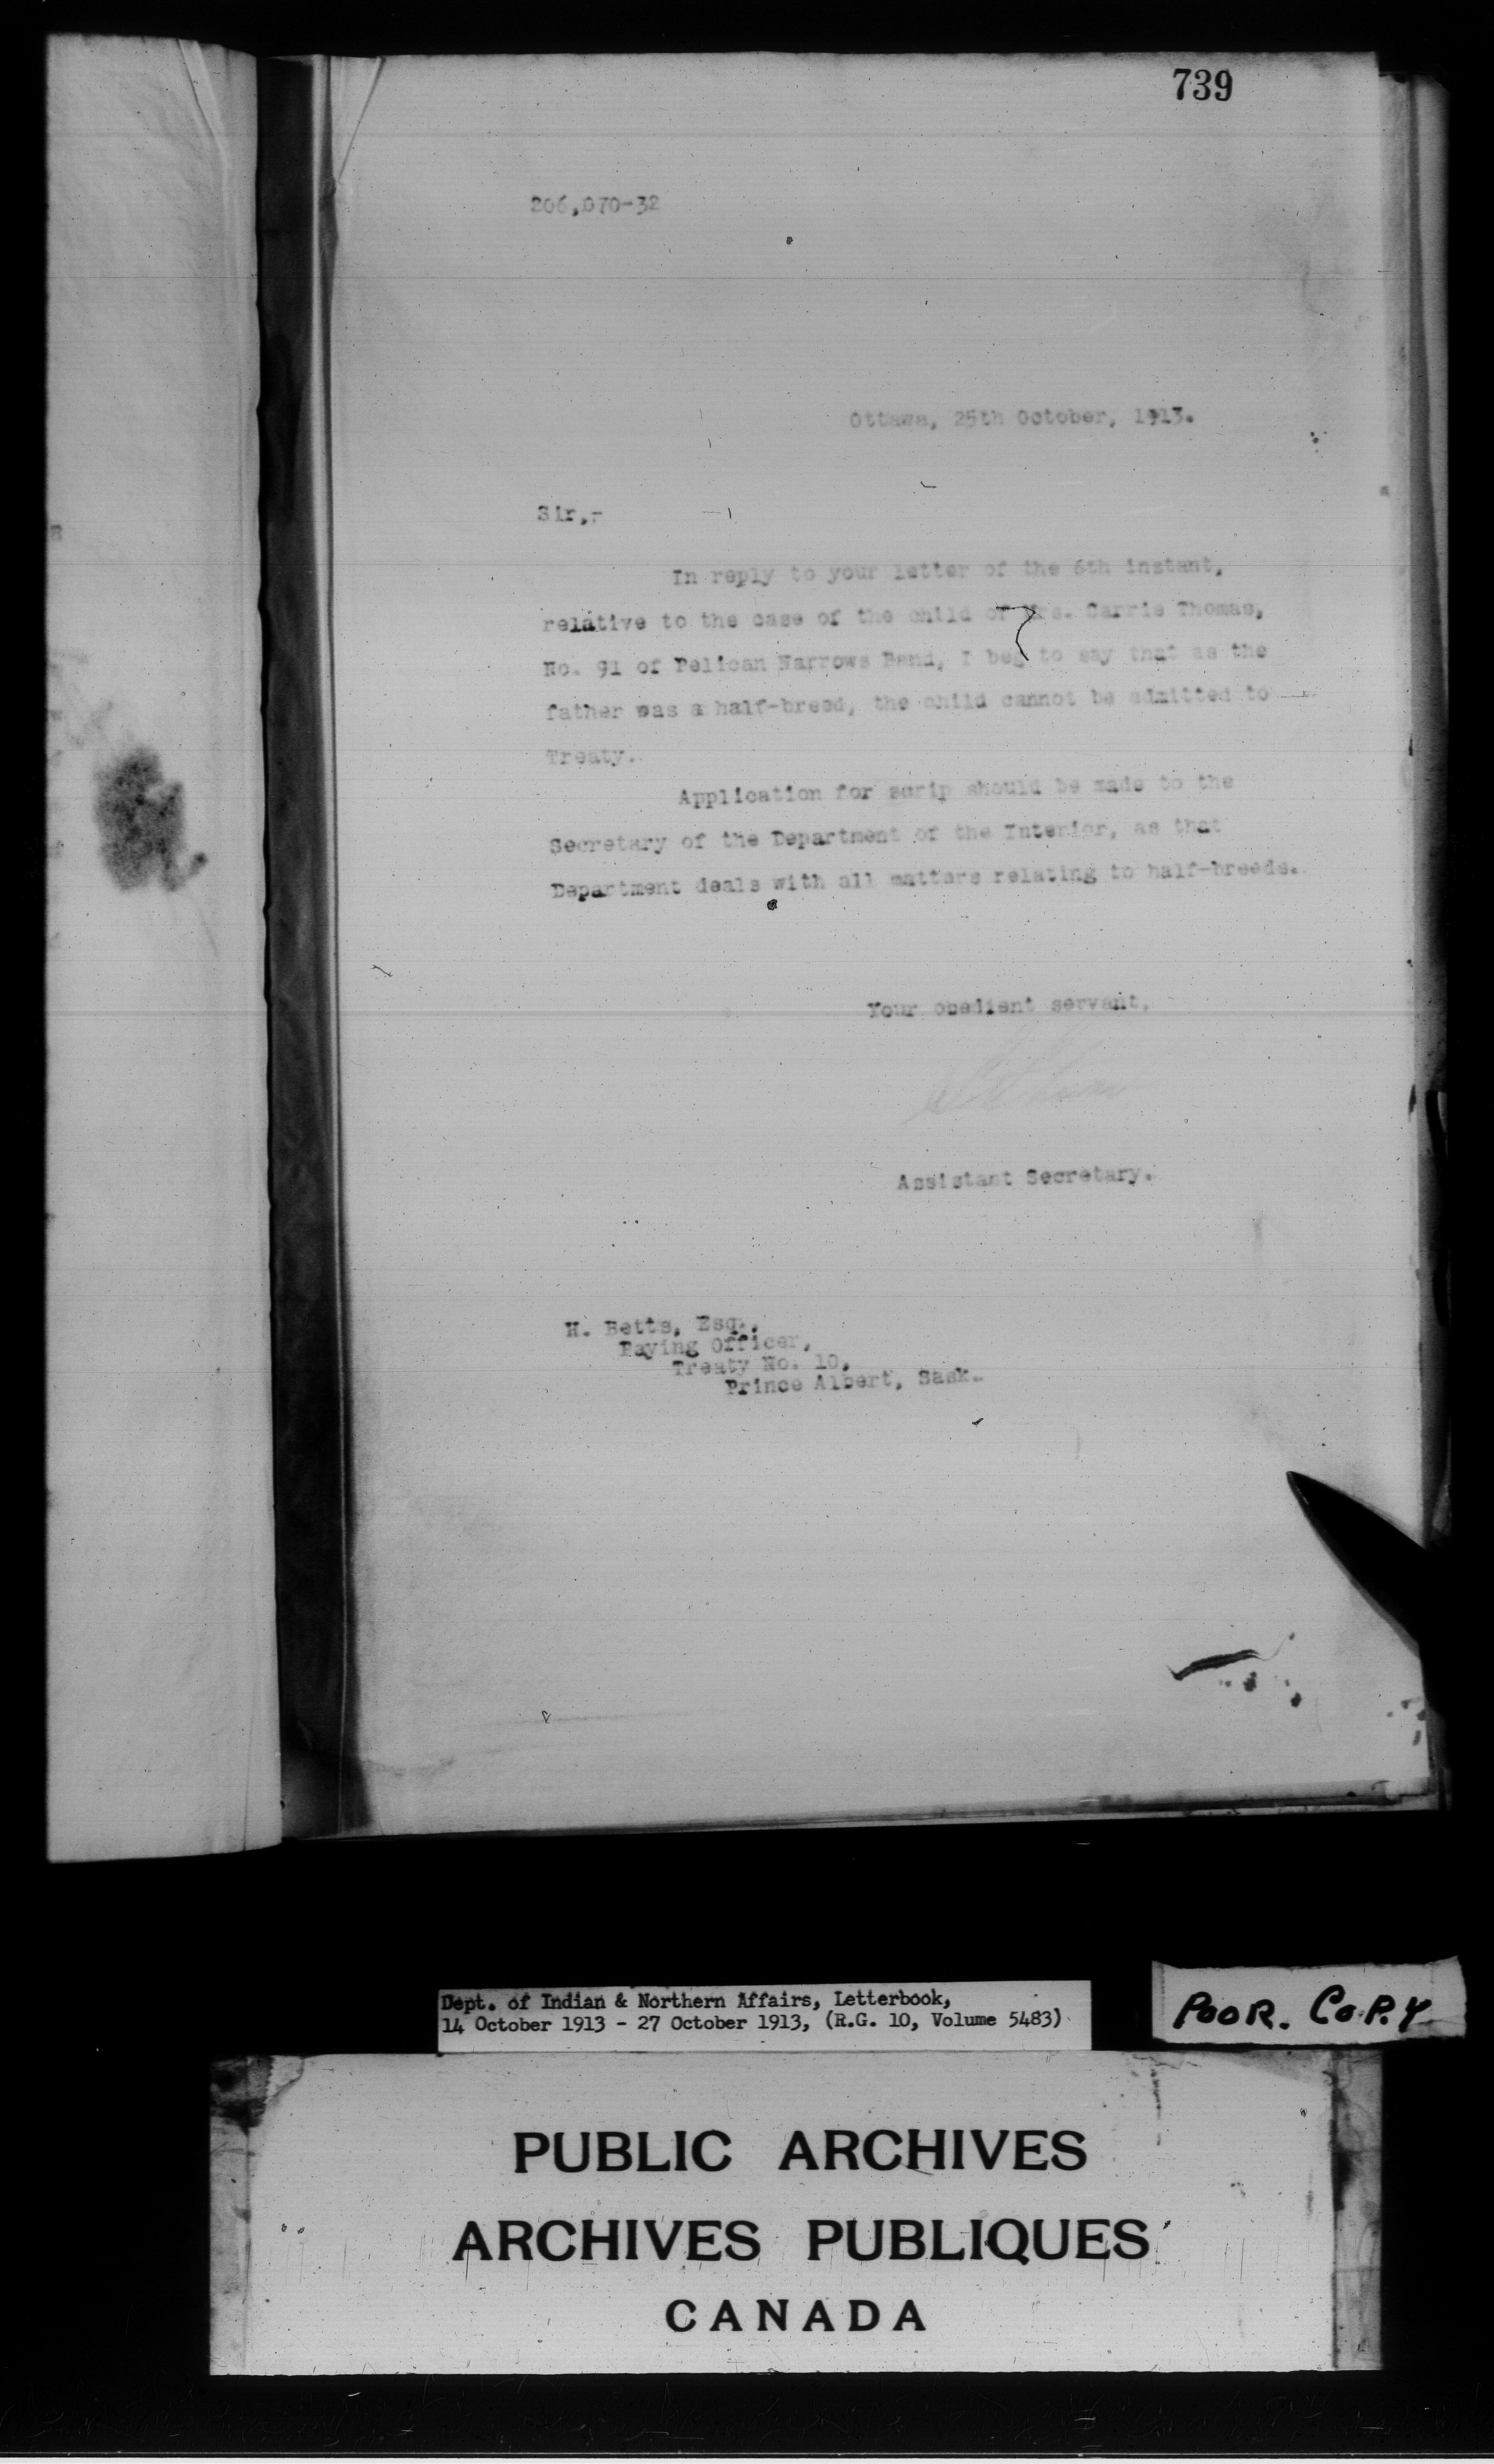 739
206,070-32
Ottawa, 25th October, 1913.
Sir,-
In reply to your letter of the 6th instant,
relative to the case of the child of Mrs. Carrie Thomas,
No. 91 of Pelican Narrows Band, I beg to say that as the
father was a half-breed, the child cannot be admitted to
Treaty.
Application for scrip should be made to the
Secretary of the Department of the Interior, as that
Department deals with all matters relating to half-breeds.
Your obedient servant,
Assistant Secretary.
H. Betts, Esq.,
Paying Officer,
Treaty No. 10,
Prince Albert, Sask.
Dept. of Indian & Northern Affairs, Letterbook,
14 October 1913 - 27 October 1913, (R.G. 10, Volume 5483)
POOR. COPY
PUBLIC ARCHIVES
ARCHIVES PUBLIQUES
CANADA